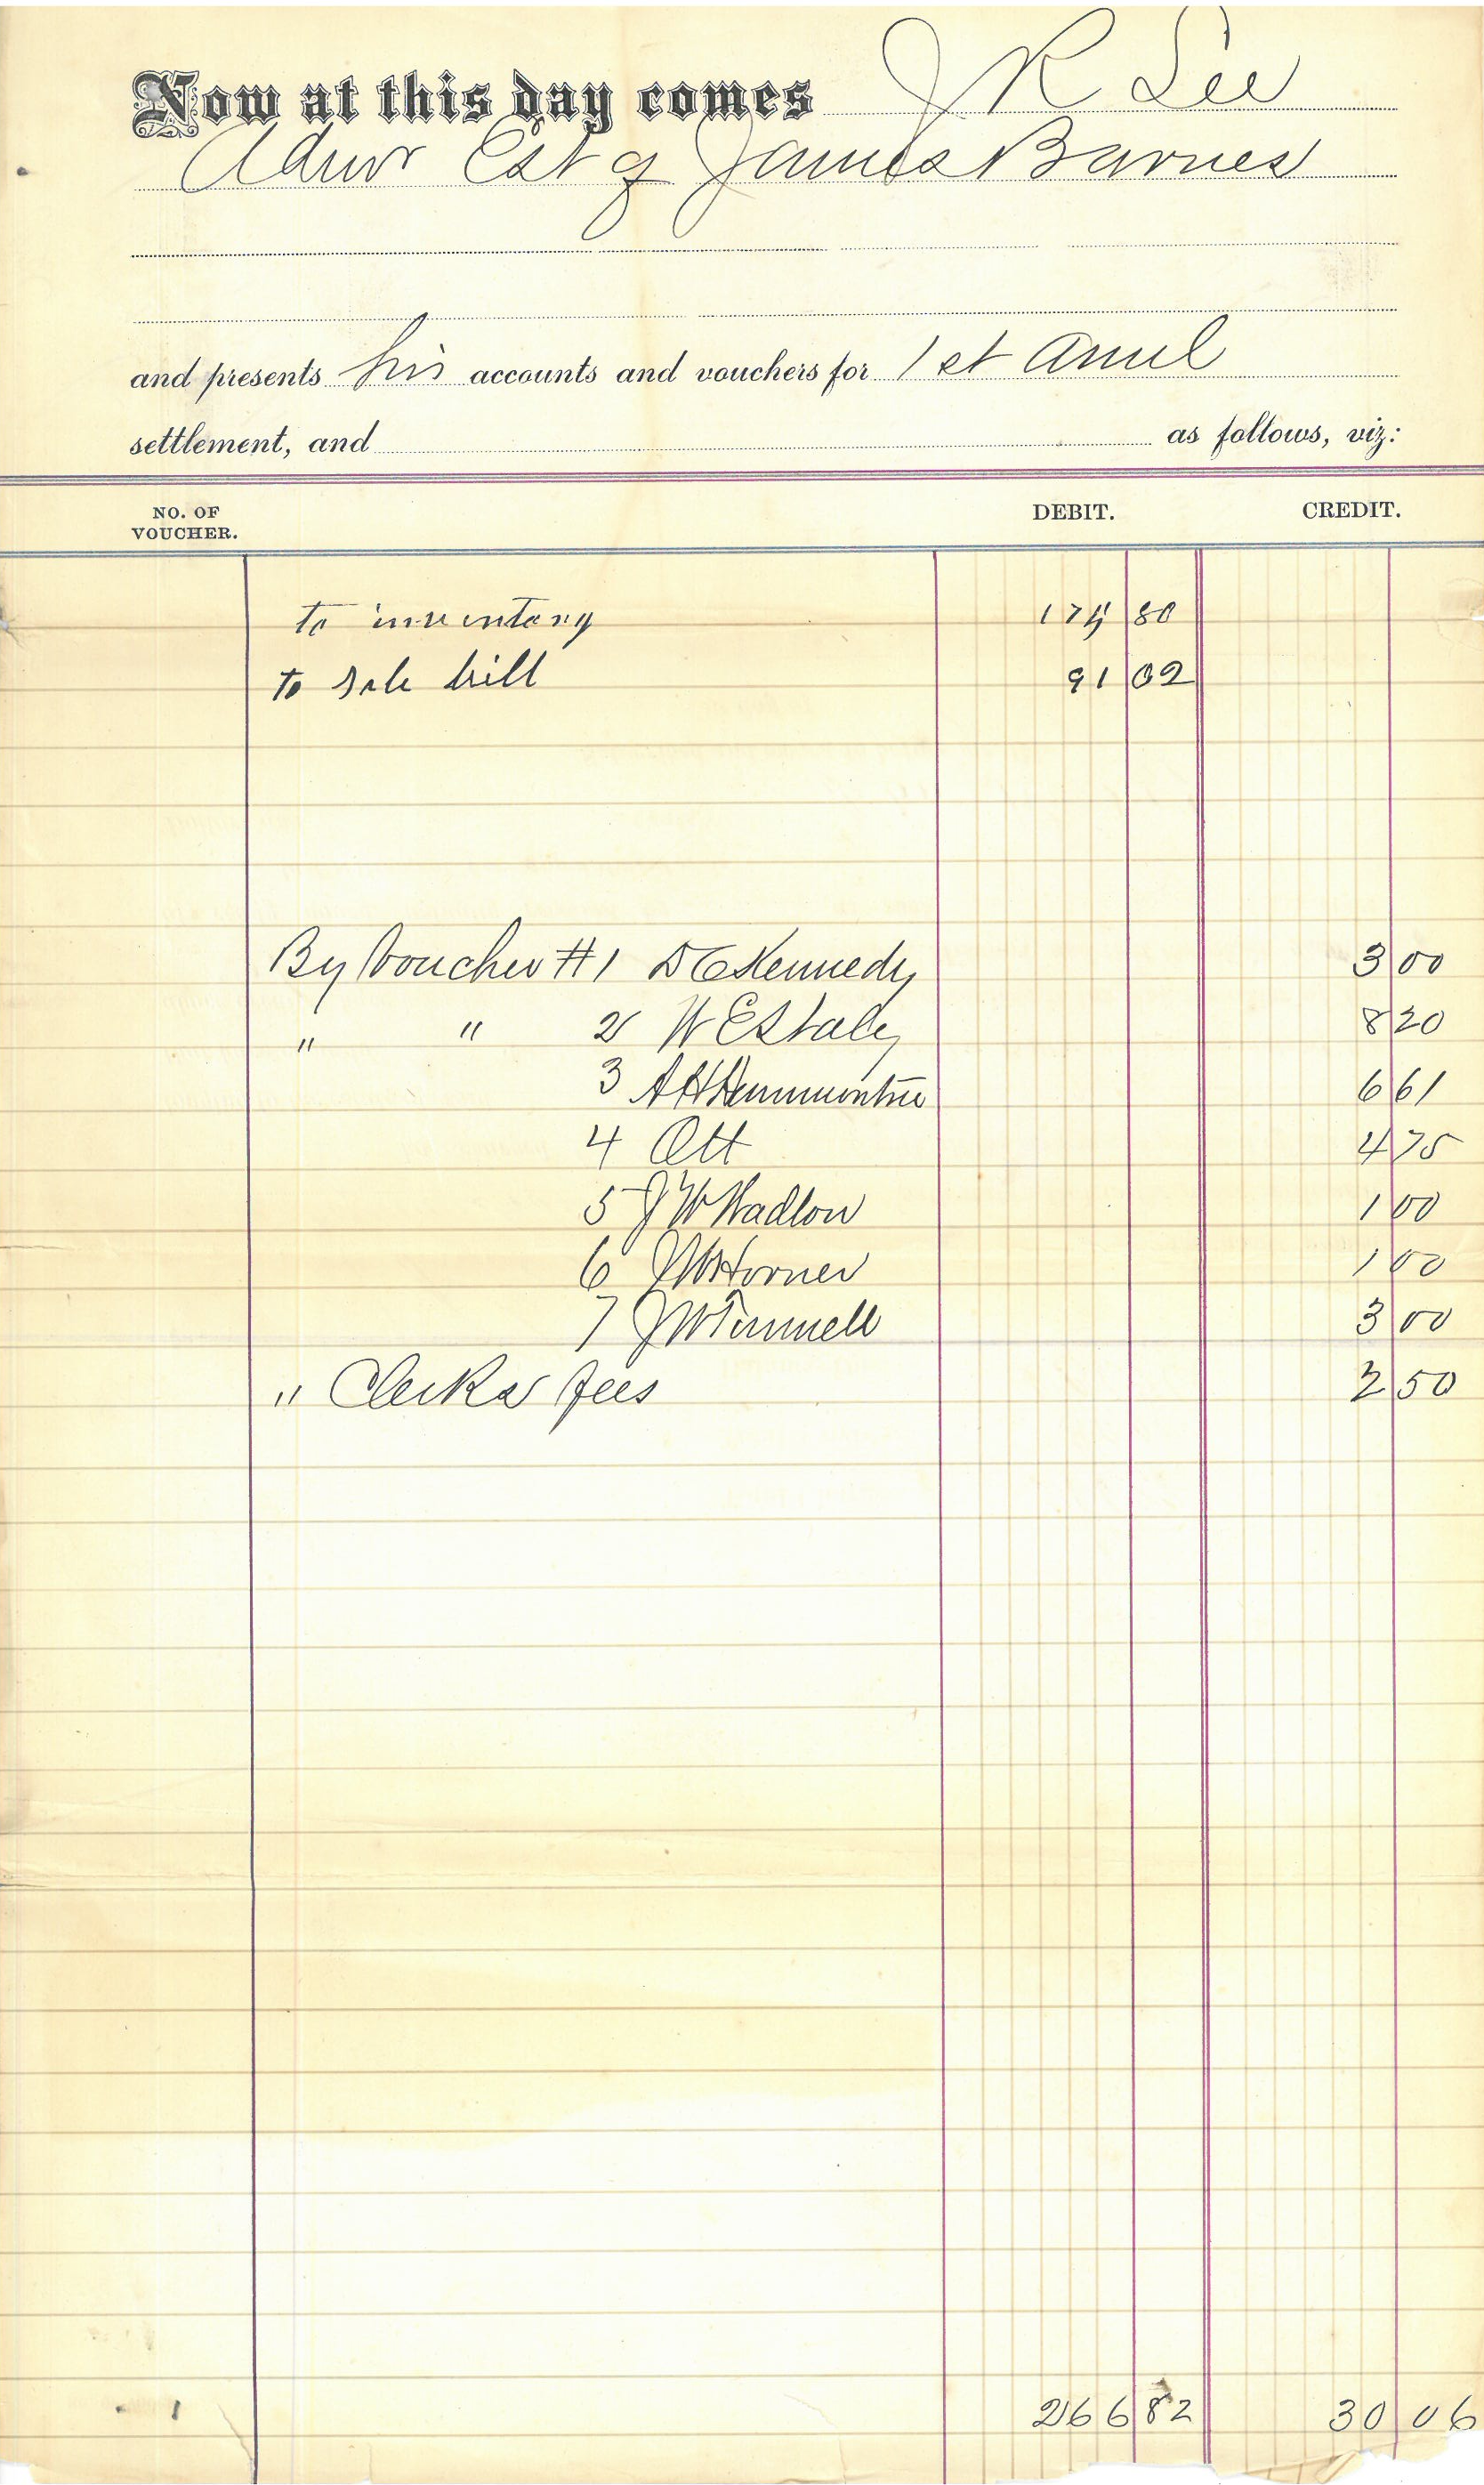 Now at this day comes J R Lee
Admr Est of James Barnes
and presents his accounts and vouchers for 1st Annul
settlement, and as follows, viz:
NO. OF VOUCHER. DEBIT. CREDIT.
to inventory 175 80
to sale bill 91 02
By Voucher #1 D C Kennedy 3 00
" " 2 W E Staley 8 20
3 A H Hummontree 6 61
4 Ott 4 75
5 J W Wadlow 1 00
6 J M Horner 1 00
7 J W Tunnell 3 00
" Clerks fees 2 50
1 266 82 30 06